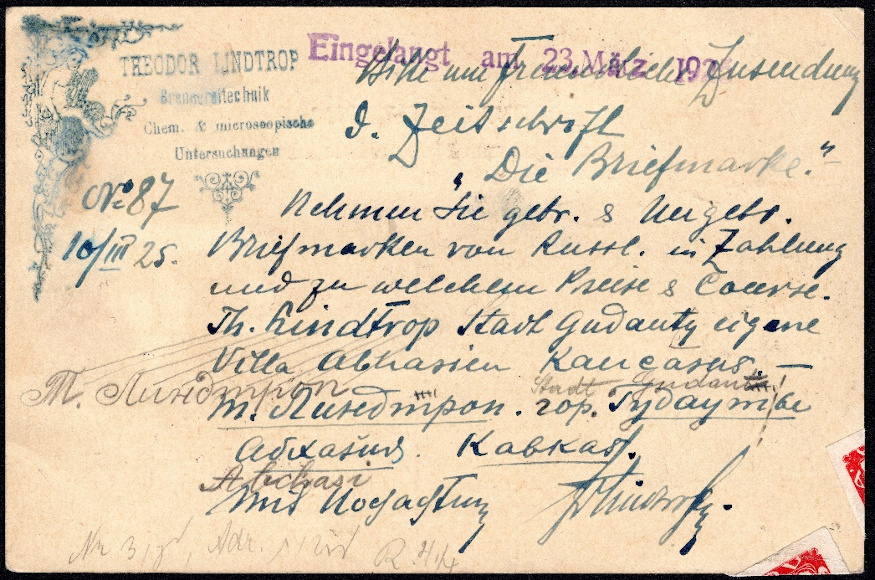 THEODOR LINDTROP
Brennereitechnik
Chem. & microscopische
Untersuchungen
Eingelangt am 23. März 192
Bitte um freundliche Zusendung
d. Zeitschrift
"Die Briefmarke."
№ 87
10/III 25.
Nehmen Sie gebr. & Ungebr.
Briefmarken von Russl. in Zahlung
und zu welchem Preise & Course.
Th. Lindtrop Stadt Gudauty eigene
Villa Abhasien Kaucasus. —
Т. Линдтроп
Stadt Gudauti
Т. Линдтроп. гор. Гудауты
Абхазия. Кавказ.
Abchasi
Mit Hochachtung
Nr 3